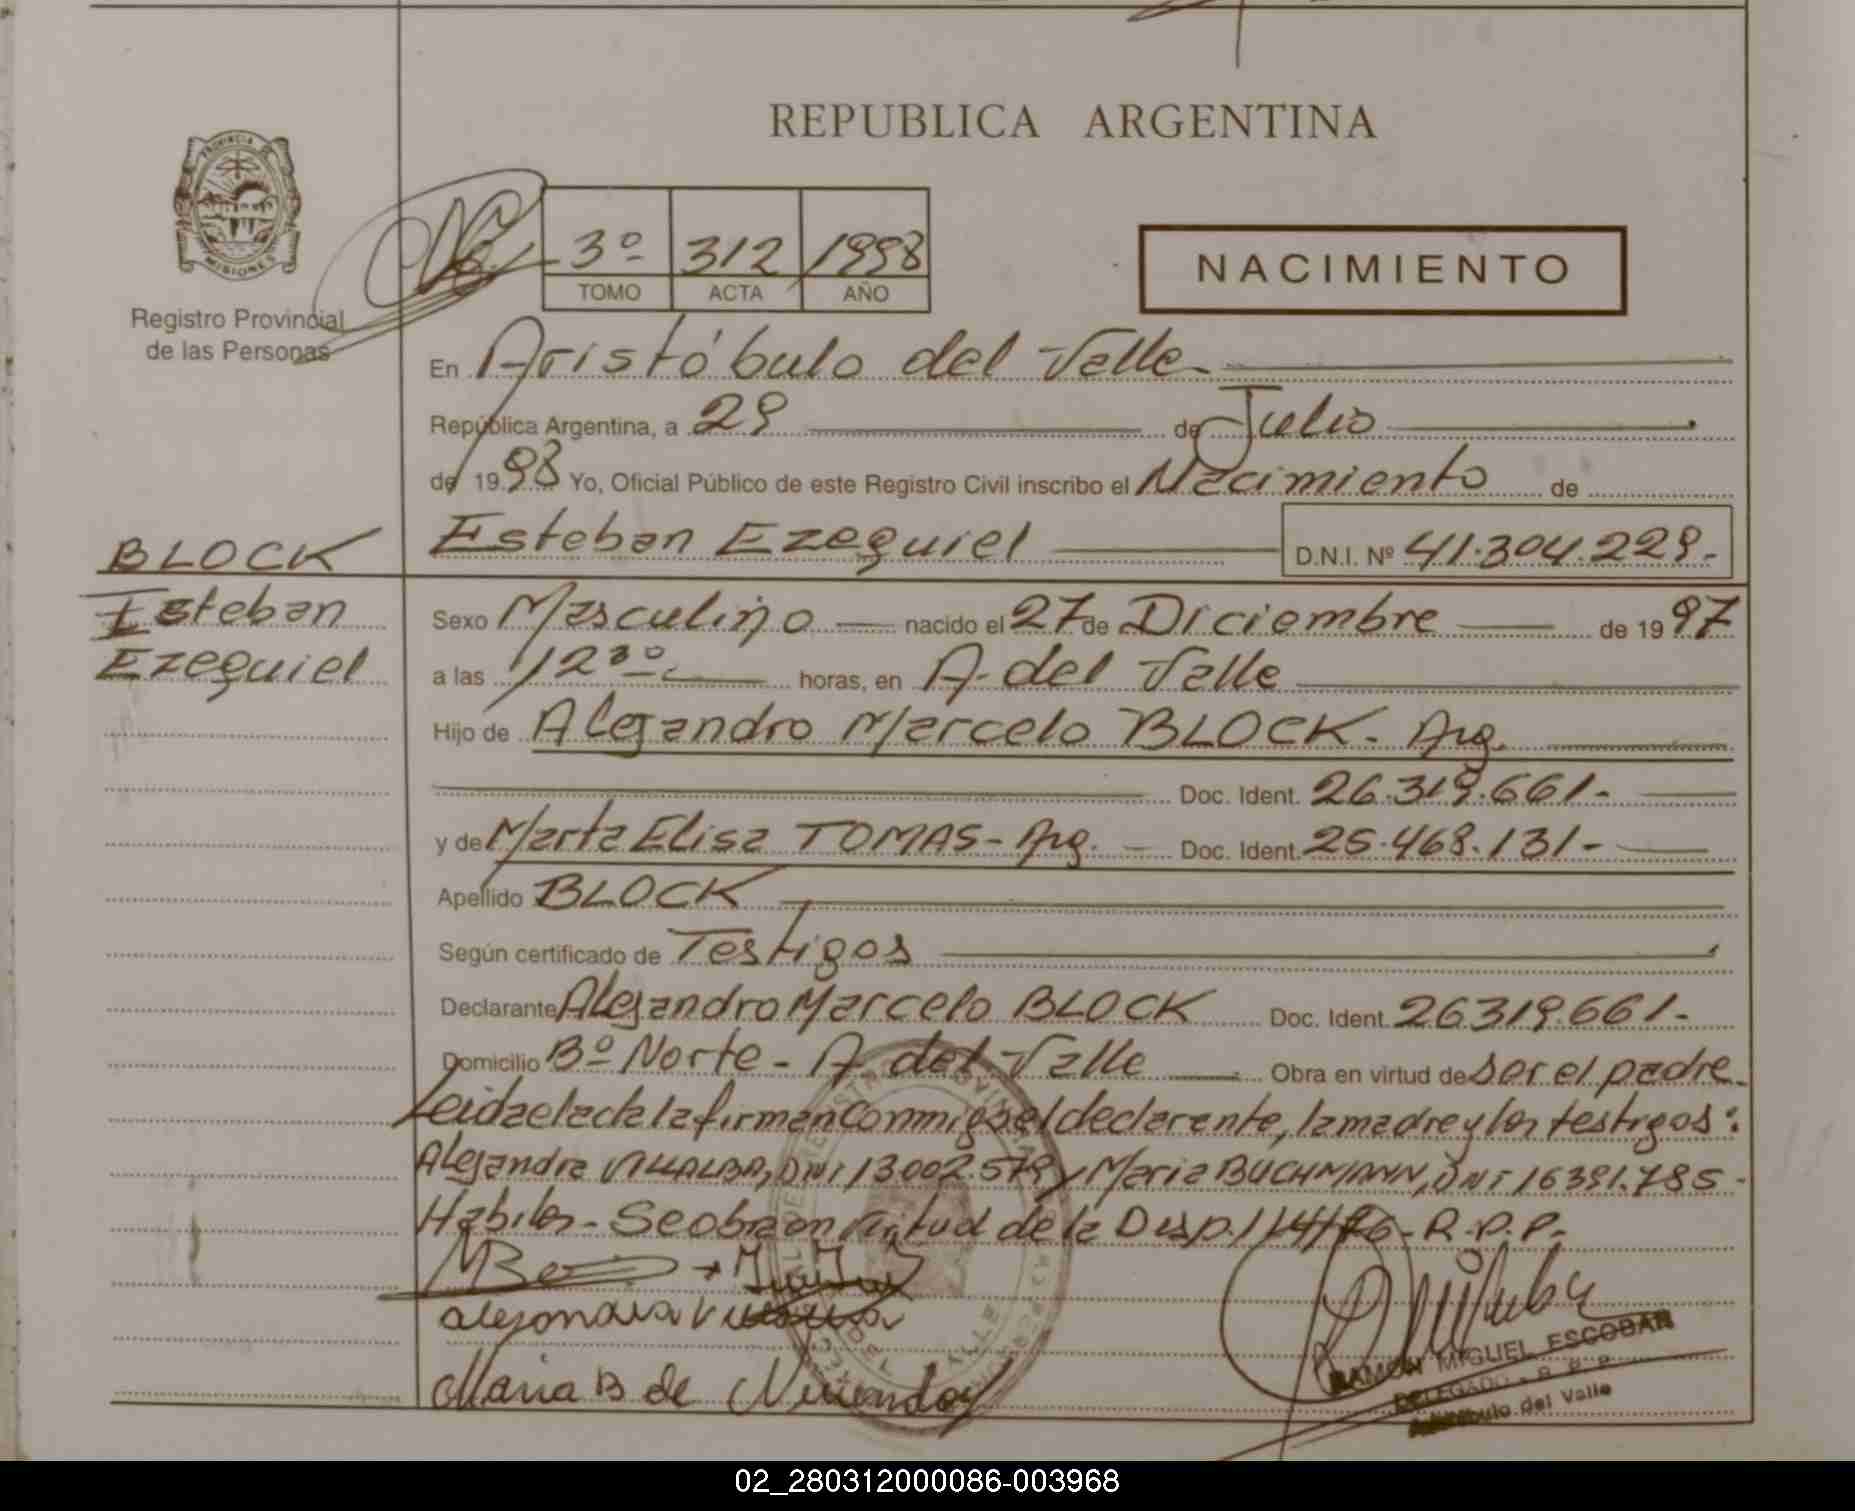 REPUBLICA ARGENTINA
PROVINCIA DE
MISIONES
Registro Provincial
de las Personas
3º 312 1998
TOMO ACTA AÑO
NACIMIENTO
En Aristóbulo del Valle
República Argentina, a 29 de Julio
de 1998 Yo, Oficial Público de este Registro Civil inscribo el Nacimiento de
Esteban Ezequiel D.N.I. Nº 41.304.229.-
BLOCK
Esteban
Ezequiel
Sexo Masculino nacido el 27 de Diciembre de 1997
a las 12³⁰ horas, en A. del Valle
Hijo de Alejandro Marcelo BLOCK - Arg.
Doc. Ident. 26.319.661.-
y de Marta Elisa TOMAS - Arg. Doc. Ident. 25.468.131-
Apellido BLOCK
Según certificado de Testigos
Declarante Alejandro Marcelo BLOCK Doc. Ident. 26319.661.-
Domicilio Bº Norte - A. del Valle Obra en virtud de ser el padre.
Leida el acta la firman conmigo el declarante, la madre y los testigos:
Alejandra VILLALBA, DNI 13.002.579 y Maria BUCHMANN, DNI 16391.785-
Habiles - Se obra en virtud de la Disp. 114/96 - R.P.P.
Alejandra Villalba
Maria B de
RAMON MIGUEL ESCOBAR
DELEGADO - R. P. P.
Aristóbulo del Valle
02_280312000086-003968